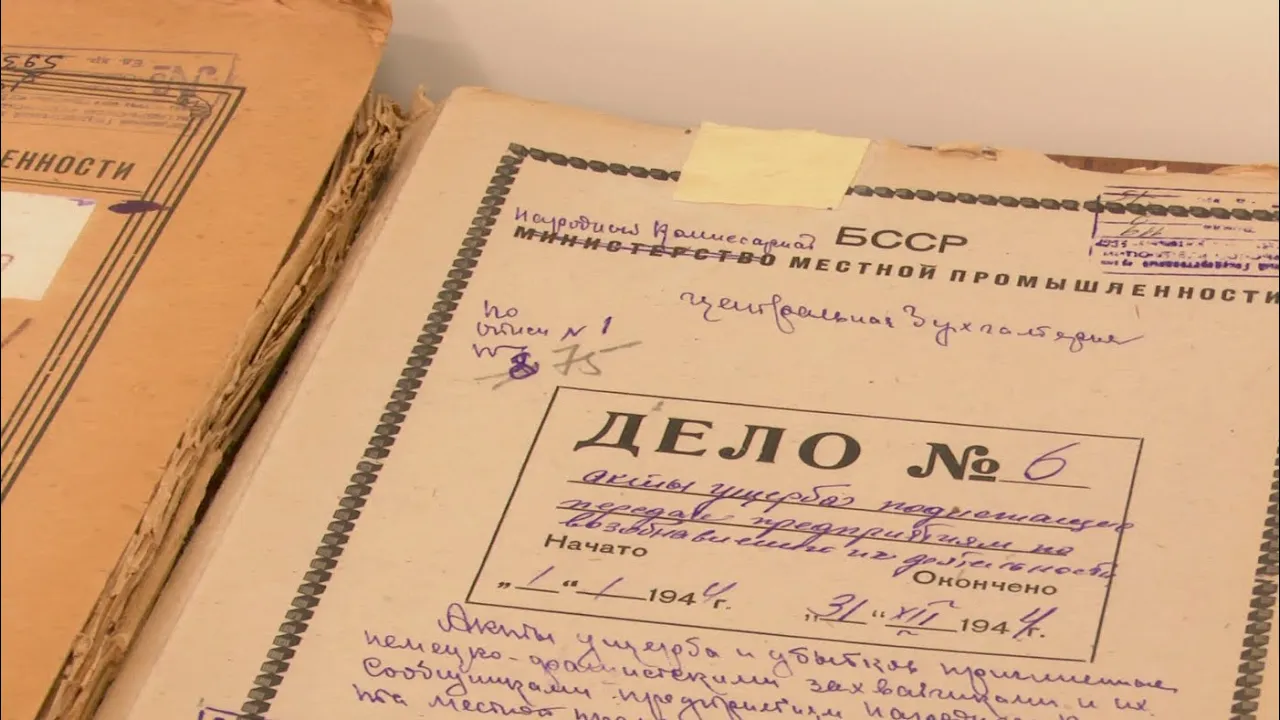 593
ЕННОСТИ
Народный Комиссариат
БССР
МИНИСТЕРСТВО МЕСТНОЙ ПРОМЫШЛЕННОСТИ
Центральная Бухгалтерия
по
описи № 1
№ 8 75
ДЕЛО № 6
акты ущерба подлежащие
передаче предприятиям по
возобнавлении их деятельности
Начато
Окончено
„1“ 1 1944 г.
„31“ XII 1944 г.
Акты ущерба и убытков причиненные
немецко-фашистскими захватчиками и их
сообщниками предприятиям Народного
та местной